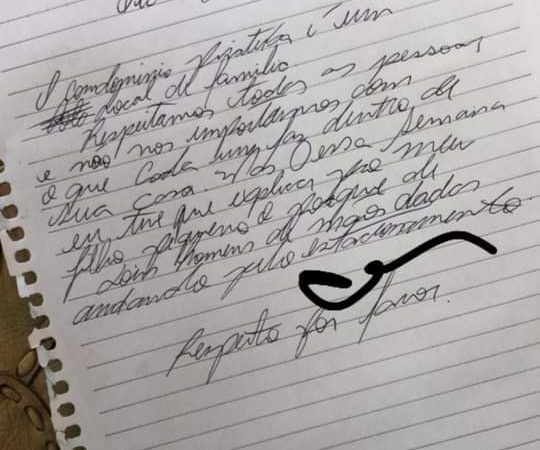 O condominio Piratuba é um
local de familia.
Respeitamos todas as pessoas
e não nos importamos com
o que cada um faz dentro de
sua casa. Mas essa semana
eu tive que explicar pro meu
filho pequeno o porque de
dois homens de mãos dadas
andando pelo estacionamento.
Respeito por favor.